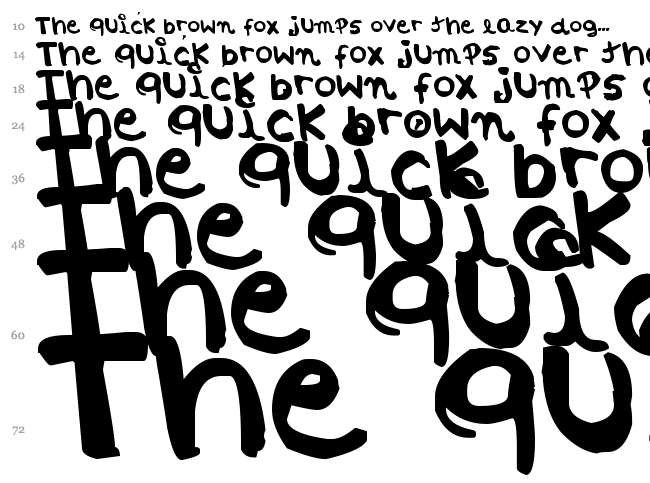 10 The quick brown fox jumps over the lazy dog...
14 The quick brown fox jumps over the
18 The quick brown fox jumps
24 The quick brown fox
36 The quick bro
48 The quick
60 The qui
72 The qu